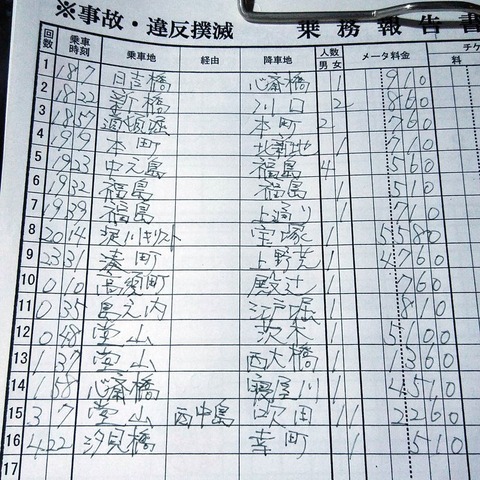 ※事故・違反撲滅 乗務報告書
回数 乗車時刻 乗車地 経由 降車地 人数 男 女 メータ料金 チケ 料
1 18 7 日吉橋 心斎橋 1 910
2 18 22 新橋 川口 2 860
3 18 57 道頓堀 本町 2 760
4 19 9 本町 北新地 1 710
5 19 23 中之島 福島 4 560
6 19 32 福島 福島 1 510
7 19 39 福島 上通り 1 710
8 20 14 淀川キリスト 宝塚 1 5580
9 23 31 湊町 上野芝 1 4760
10 0 10 高須町 殿辻 1 760
11 0 35 島之内 江戸堀 1 810
12 0 48 堂山 茨木 1 5100
13 1 37 堂山 西大橋 1 1360
14 1 58 心斎橋 寝屋川 1 4510
15 3 7 堂山 西中島 吹田 1 1 2260
16 4 22 汐見橋 幸町 1 510
17